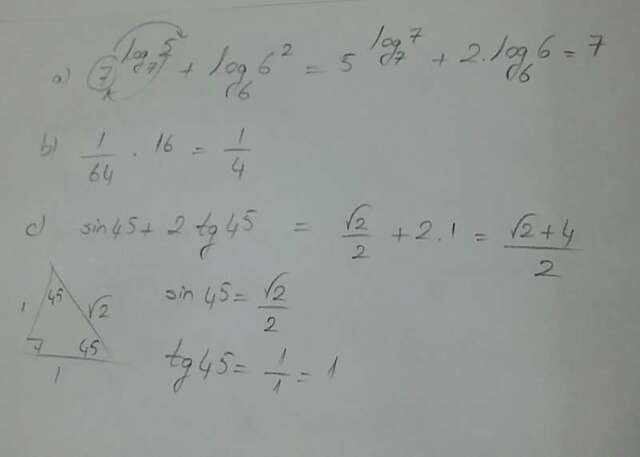 a) 7^log₇5 + log₆6² = 5^log₇7 + 2.log₆6 = 7
b) 1/64 . 16 = 1/4
c) sin45+ 2 tg45 = √2/2 + 2.1 = √2+4/2
45 1 √2 45 1
sin 45 = √2/2
tg45 = 1/1 = 1